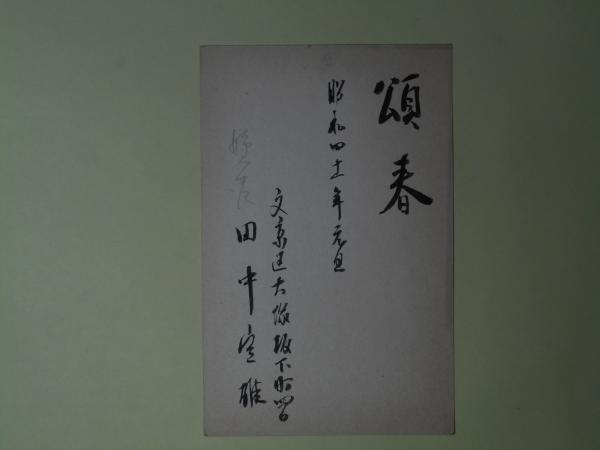 頌春
昭和四十一年元旦
文京区大塚坂下町四
田中宣雄